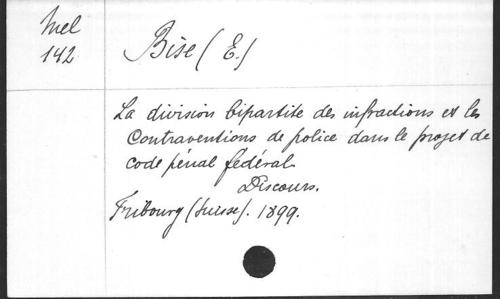 Mel
142
Bise (E.)
La division bipartite des infractions et les
Contraventions de police dans le projet de
code pénal fédéral.
Discours.
Fribourg (Suisse). 1899.